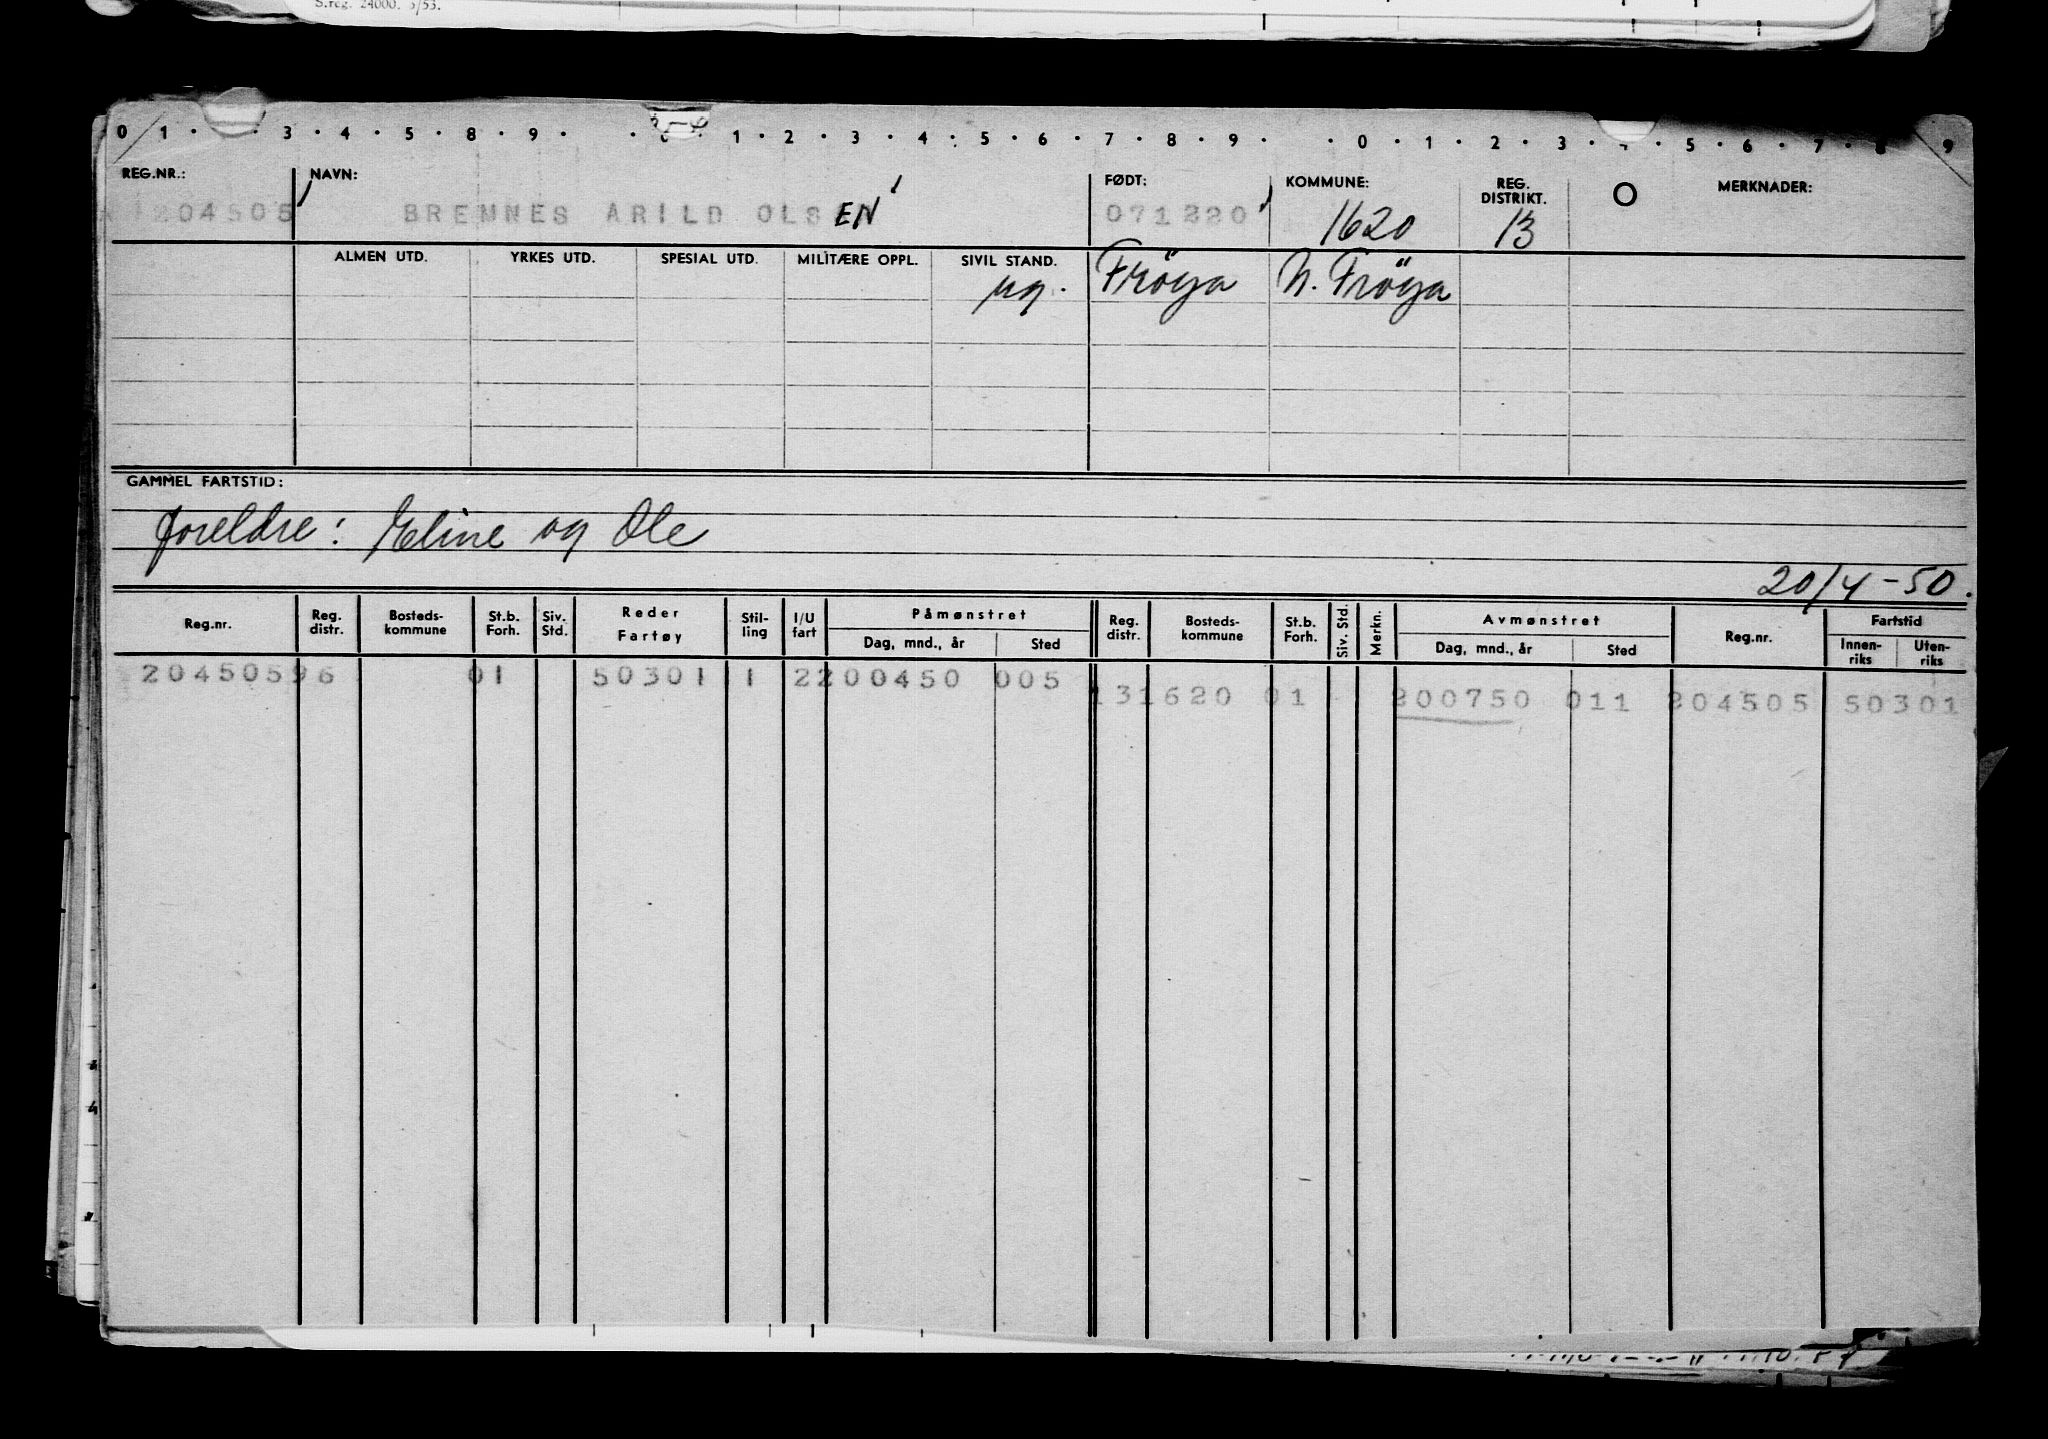 S.reg. 24000. 5/53.
0 1 · · 3 · 4 · 5 · 8 · 9 · · · 1 · 2 · 3 · 4 · 5 · 6 · 7 · 8 · 9 · · 0 · 1 · 2 · 3 · · 5 · 6 · 7 · 8 · 9
REG.NR.: NAVN: FØDT: KOMMUNE: REG. DISTRIKT. O MERKNADER:
204505 BREMNES ARILD OLSEN 071220 1620 13
ALMEN UTD. YRKES UTD. SPESIAL UTD. MILITÆRE OPPL. SIVIL STAND.
ug. Fröya N. Fröya
GAMMEL FARTSTID:
foreldre: Eline og Ole
20/4-50.
Reg.nr. Reg. distr. Bosteds-kommune St.b. Forh. Siv. Std. Reder Fartøy Stil-ling I/U fart Påmønstret Dag, mnd., år Sted Reg. distr. Bosteds-kommune St.b. Forh. Siv. Std. Merkn. Avmønstret Dag, mnd., år Sted Reg.nr. Fartstid Innen-riks Uten-riks
204505 96 01 50301 1 2 200450 005
131620 01 200750 011 204505 50301